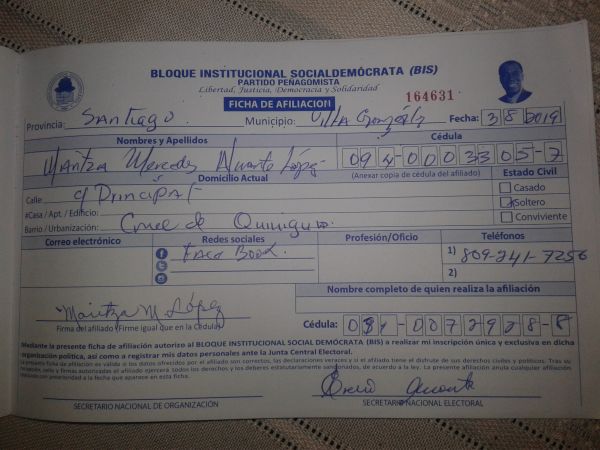 BLOQUE INSTITUCIONAL SOCIALDEMÓCRATA (BIS)
PARTIDO PEÑAGOMISTA
Libertad, Justicia, Democracia y Solidaridad
164631
FICHA DE AFILIACION
Provincia: Santiago Municipio: Villa González Fecha: 3 8 2019
Nombres y Apellidos Cédula
Maritza Mercedes López 094-0003305-7
Domicilio Actual (Anexar copia de cédula del afiliado)
Estado Civil
Calle c/ Principal
Casado
#Casa / Apt. / Edificio:
Soltero
Barrio / Urbanización: Cruce de Quinigua
Conviviente
Correo electrónico Redes sociales Profesión/Oficio Teléfonos
Face Book 1) 809-241-7256
2)
Nombre completo de quien realiza la afiliación
Maritza M López
Firma del afiliado (Firme igual que en la Cédula)
Cédula: 031-0072928-8
Mediante la presente ficha de afiliación autorizo al BLOQUE INSTITUCIONAL SOCIAL DEMÓCRATA (BIS) a realizar mi inscripción única y exclusiva en dicha
organización política, así como a registrar mis datos personales ante la Junta Central Electoral.
La presente ficha de afiliación es válida si los datos ofrecidos por el afiliado son correctos, las declaraciones veraces y si el afiliado tiene el disfrute de sus derechos civiles y políticos. Tras su
sello y firmas autorizadas el afiliado ejercerá todos los derechos y los deberes estatutariamente sancionados, de acuerdo a la ley. La presente afiliación anula cualquier afiliación
realizada con anterioridad a la fecha que aparece en esta ficha.
SECRETARIO NACIONAL DE ORGANIZACIÓN SECRETARIO NACIONAL ELECTORAL